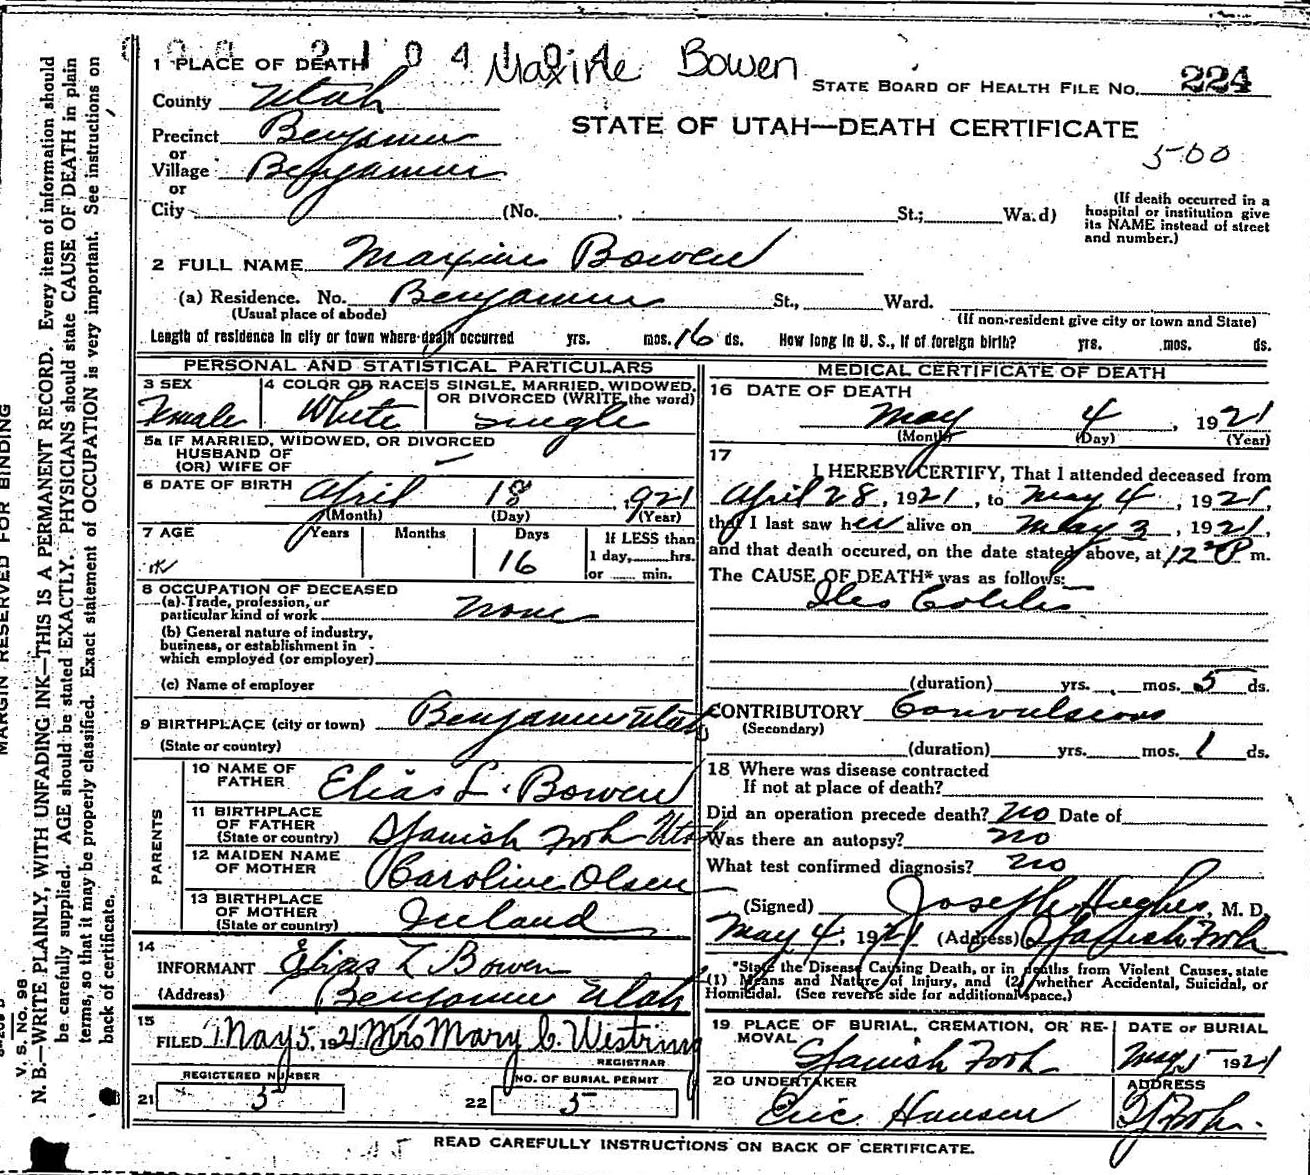 2104 Maxine Bowen
1 PLACE OF DEATH
STATE BOARD OF HEALTH FILE No. 224
County Utah
STATE OF UTAH—DEATH CERTIFICATE
Precinct Benjamin
500
or
Village Benjamin
or
City (No. , St.; Wa.d)
(If death occurred in a
hospital or institution give
its NAME instead of street
and number.)
2 FULL NAME Maxine Bowen
(a) Residence. No. Benjamin St., Ward.
(Usual place of abode) (If non-resident give city or town and State)
Length of residence in city or town where death occurred yrs. mos. 16 ds. How long in U. S., if of foreign birth? yrs. mos. ds.
PERSONAL AND STATISTICAL PARTICULARS
3 SEX
Female
4 COLOR OR RACE
White
5 SINGLE, MARRIED, WIDOWED,
OR DIVORCED (WRITE the word)
single
5a IF MARRIED, WIDOWED, OR DIVORCED
HUSBAND OF
(OR) WIFE OF
6 DATE OF BIRTH April 18, 1921
(Month) (Day) (Year)
7 AGE Years Months Days If LESS than
1 day, hrs.
16 or min.
8 OCCUPATION OF DECEASED
(a) Trade, profession, or
particular kind of work none
(b) General nature of industry,
business, or establishment in
which employed (or employer)
(c) Name of employer
9 BIRTHPLACE (city or town) Benjamin Utah
(State or country)
PARENTS
10 NAME OF
FATHER Elias L. Bowen
11 BIRTHPLACE
OF FATHER
(State or country) Spanish Fork Utah
12 MAIDEN NAME
OF MOTHER Caroline Olsen
13 BIRTHPLACE
OF MOTHER
(State or country) Iceland
14
INFORMANT Elias L Bowen
(Address) Benjamin Utah
15
FILED May 5, 1921 Mrs Mary C. Westring
REGISTRAR
REGISTERED NUMBER
21 5
NO. OF BURIAL PERMIT
22 5
MEDICAL CERTIFICATE OF DEATH
16 DATE OF DEATH
May 4, 1921
(Month) (Day) (Year)
17
I HEREBY CERTIFY, That I attended deceased from
April 28, 1921, to May 4, 1921,
that I last saw her alive on May 3, 1921,
and that death occured, on the date stated above, at 12 P m.
The CAUSE OF DEATH* was as follows:
Ileo Colitis
(duration) yrs. mos. 5 ds.
CONTRIBUTORY Convulsions
(Secondary)
(duration) yrs. mos. 1 ds.
18 Where was disease contracted
If not at place of death?
Did an operation precede death? no Date of
Was there an autopsy? no
What test confirmed diagnosis? no
(Signed) Joseph Hughes, M. D.
May 4, 1921 (Address) Spanish Fork
*State the Disease Causing Death, or in deaths from Violent Causes, state
(1) Means and Nature of Injury, and (2) whether Accidental, Suicidal, or
Homicidal. (See reverse side for additional space.)
19 PLACE OF BURIAL, CREMATION, OR RE-
MOVAL
Spanish Fork
DATE OF BURIAL
May 5 1921
20 UNDERTAKER
Eric Hansen
ADDRESS
S. Fork.
READ CAREFULLY INSTRUCTIONS ON BACK OF CERTIFICATE.
MARGIN RESERVED FOR BINDING
V. S. No. 98
N. B.—WRITE PLAINLY, WITH UNFADING INK—THIS IS A PERMANENT RECORD. Every item of information should
be carefully supplied. AGE should be stated EXACTLY. PHYSICIANS should state CAUSE OF DEATH in plain
terms, so that it may be properly classified. Exact statement of OCCUPATION is very important. See instructions on
back of certificate.